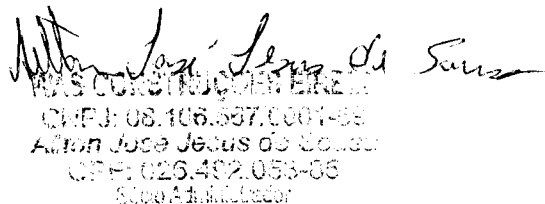 Ailton José Jesus de Souza
WAS CONSTRUÇÕES EIRELI
CNPJ: 08.106.567.0001-
Ailton José Jesus de Souza
CPF: 026.492.053-86
Sócio Administrador